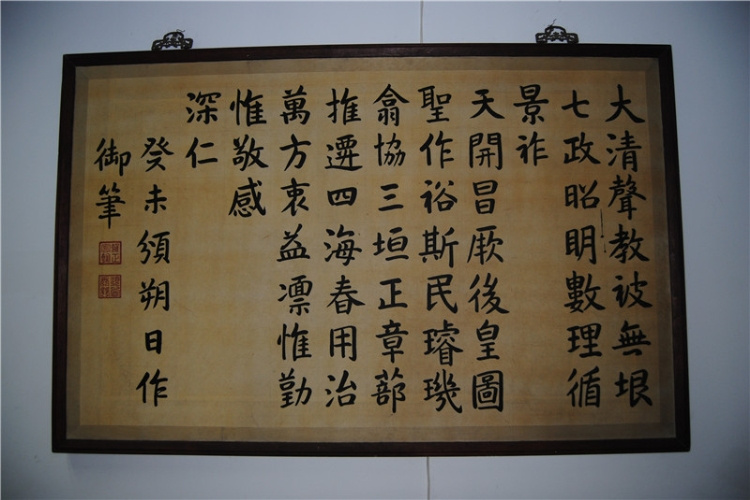 大清聲教被無垠
七政昭明數理循
景祚
天開昌厥後皇圖
聖作裕斯民璿璣
翕協三垣正章蔀
推遷四海春用治
萬方衷益凛惟勤
惟敬感
深仁
癸未頒朔日作
御筆